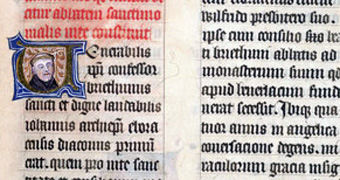 citur ablatem sanctimo
malis inte constituit
Venerabilis
xpi confessor
briethunus
sancti et digne laudabilis
iohannis archiepi ebora
censis diaconus primum
erat. quem pro vite sanc
wilfrido presbitero suo.
ipse cum consilio suo
briethuni ablatis ad
monasterium suum qd
apud
nerat secessit. Ibique qua
tuor annis in angelica
conversacione degens.
raculorum gracia insig